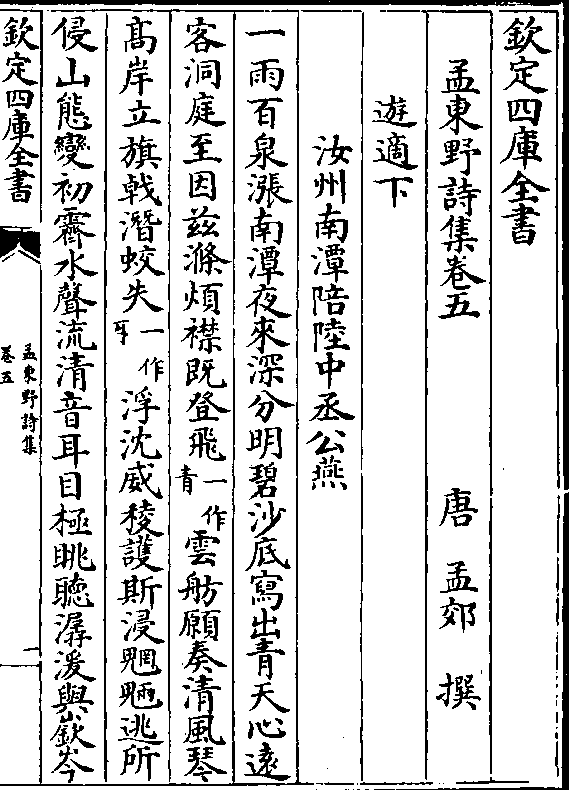 欽定四庫全書
孟東野詩集卷五
唐 孟郊 撰
遊適下
汝州南潭陪陸中丞公燕
一雨百泉漲南潭夜來深分明碧沙底寫出青天心遠
客洞庭至因兹滌煩襟既登飛一作青雲舫願奏清風琴
髙岸立旗戟潛蛟失一作乎浮沈威稜護斯浸魍魎逃所
侵山態變初霽水聲流清音耳目極眺聴潺湲與嶔岑
欽定四庫全書
孟東野詩集
卷五
一